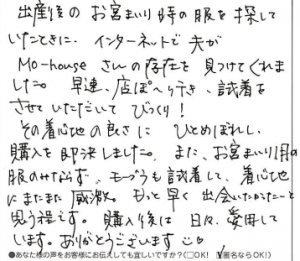 出産後の お宮まいり時の服を探して
いたときに、インターネットで夫が
Mo-house さんの存在を見つけてくれま
した。早速、店 へ行き、試着を
させていただいて びっくり!
その着心地の良さに ひとめぼれし、
購入を即決しました。また、お宮まいり用の
服のみならず、モーブラも試着して、着心地
にまたまた 感激。もっと早く 出会いたかったーと
思う程です。購入後は 日々、愛用して
います。ありがとうございます
●あなた様の声をお客様にお伝えしても宜しいですか?(□OK! 匿名ならOK!)